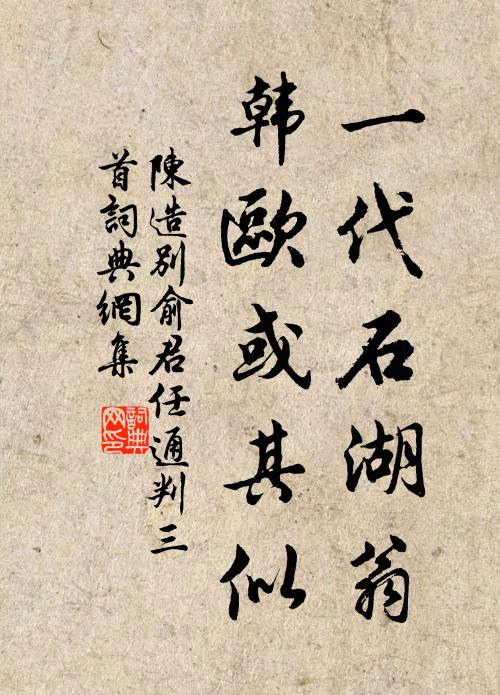 一代石湖翁
韩歐或其似
陳造別俞君任通判三
首詞典網集
詞典
网印